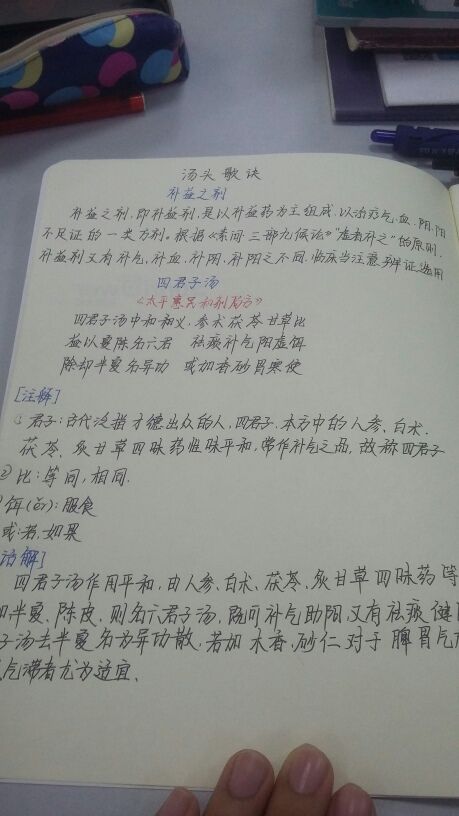 汤头歌诀
补益之剂
补益之剂,即补益剂,是以补益药为主组成,以治疗气、血、阴、阳
不足证的一类方剂。根据《素问·三部九候论》"虚者补之"的原则,
补益剂又有补气,补血,补阴,补阳之不同,临床当注意辨证选用
四君子汤
《太平惠民和剂局方》
四君子汤中和义,参术茯苓甘草比
益以夏陈名六君 祛痰补气阳虚饵
除却半夏名异功 或加香砂胃寒使
[注解]
①君子:古代泛指才德出众的人,四君子:本方中的人参、白术、
茯苓、炙甘草四味药性味平和,常作补气之品,故称四君子
②比:等同,相同.
饵(ěr):服食
或:若,如果
语解]
四君子汤作用平和,由人参、白术、茯苓、炙甘草四味药等
加半夏、陈皮,则名六君子汤,既可补气助阳,又有祛痰健
子汤去半夏名为异功散,若加木香、砂仁对于脾胃气
气滞者尤为适宜、